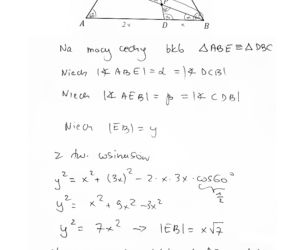 A 2x D x B
Na mocy cechy bkb △ABE ≡ △DBC
Niech |∢ABE| = α = |∢DCB|
Niech |∢AEB| = β = |∢CDB|
Niech |EB| = y
z tw. cosinusów
y² = x² + (3x)² - 2·x·3x·cos60°
½
y² = x² + 9x² - 3x²
y² = 7x² → |EB| = x√7